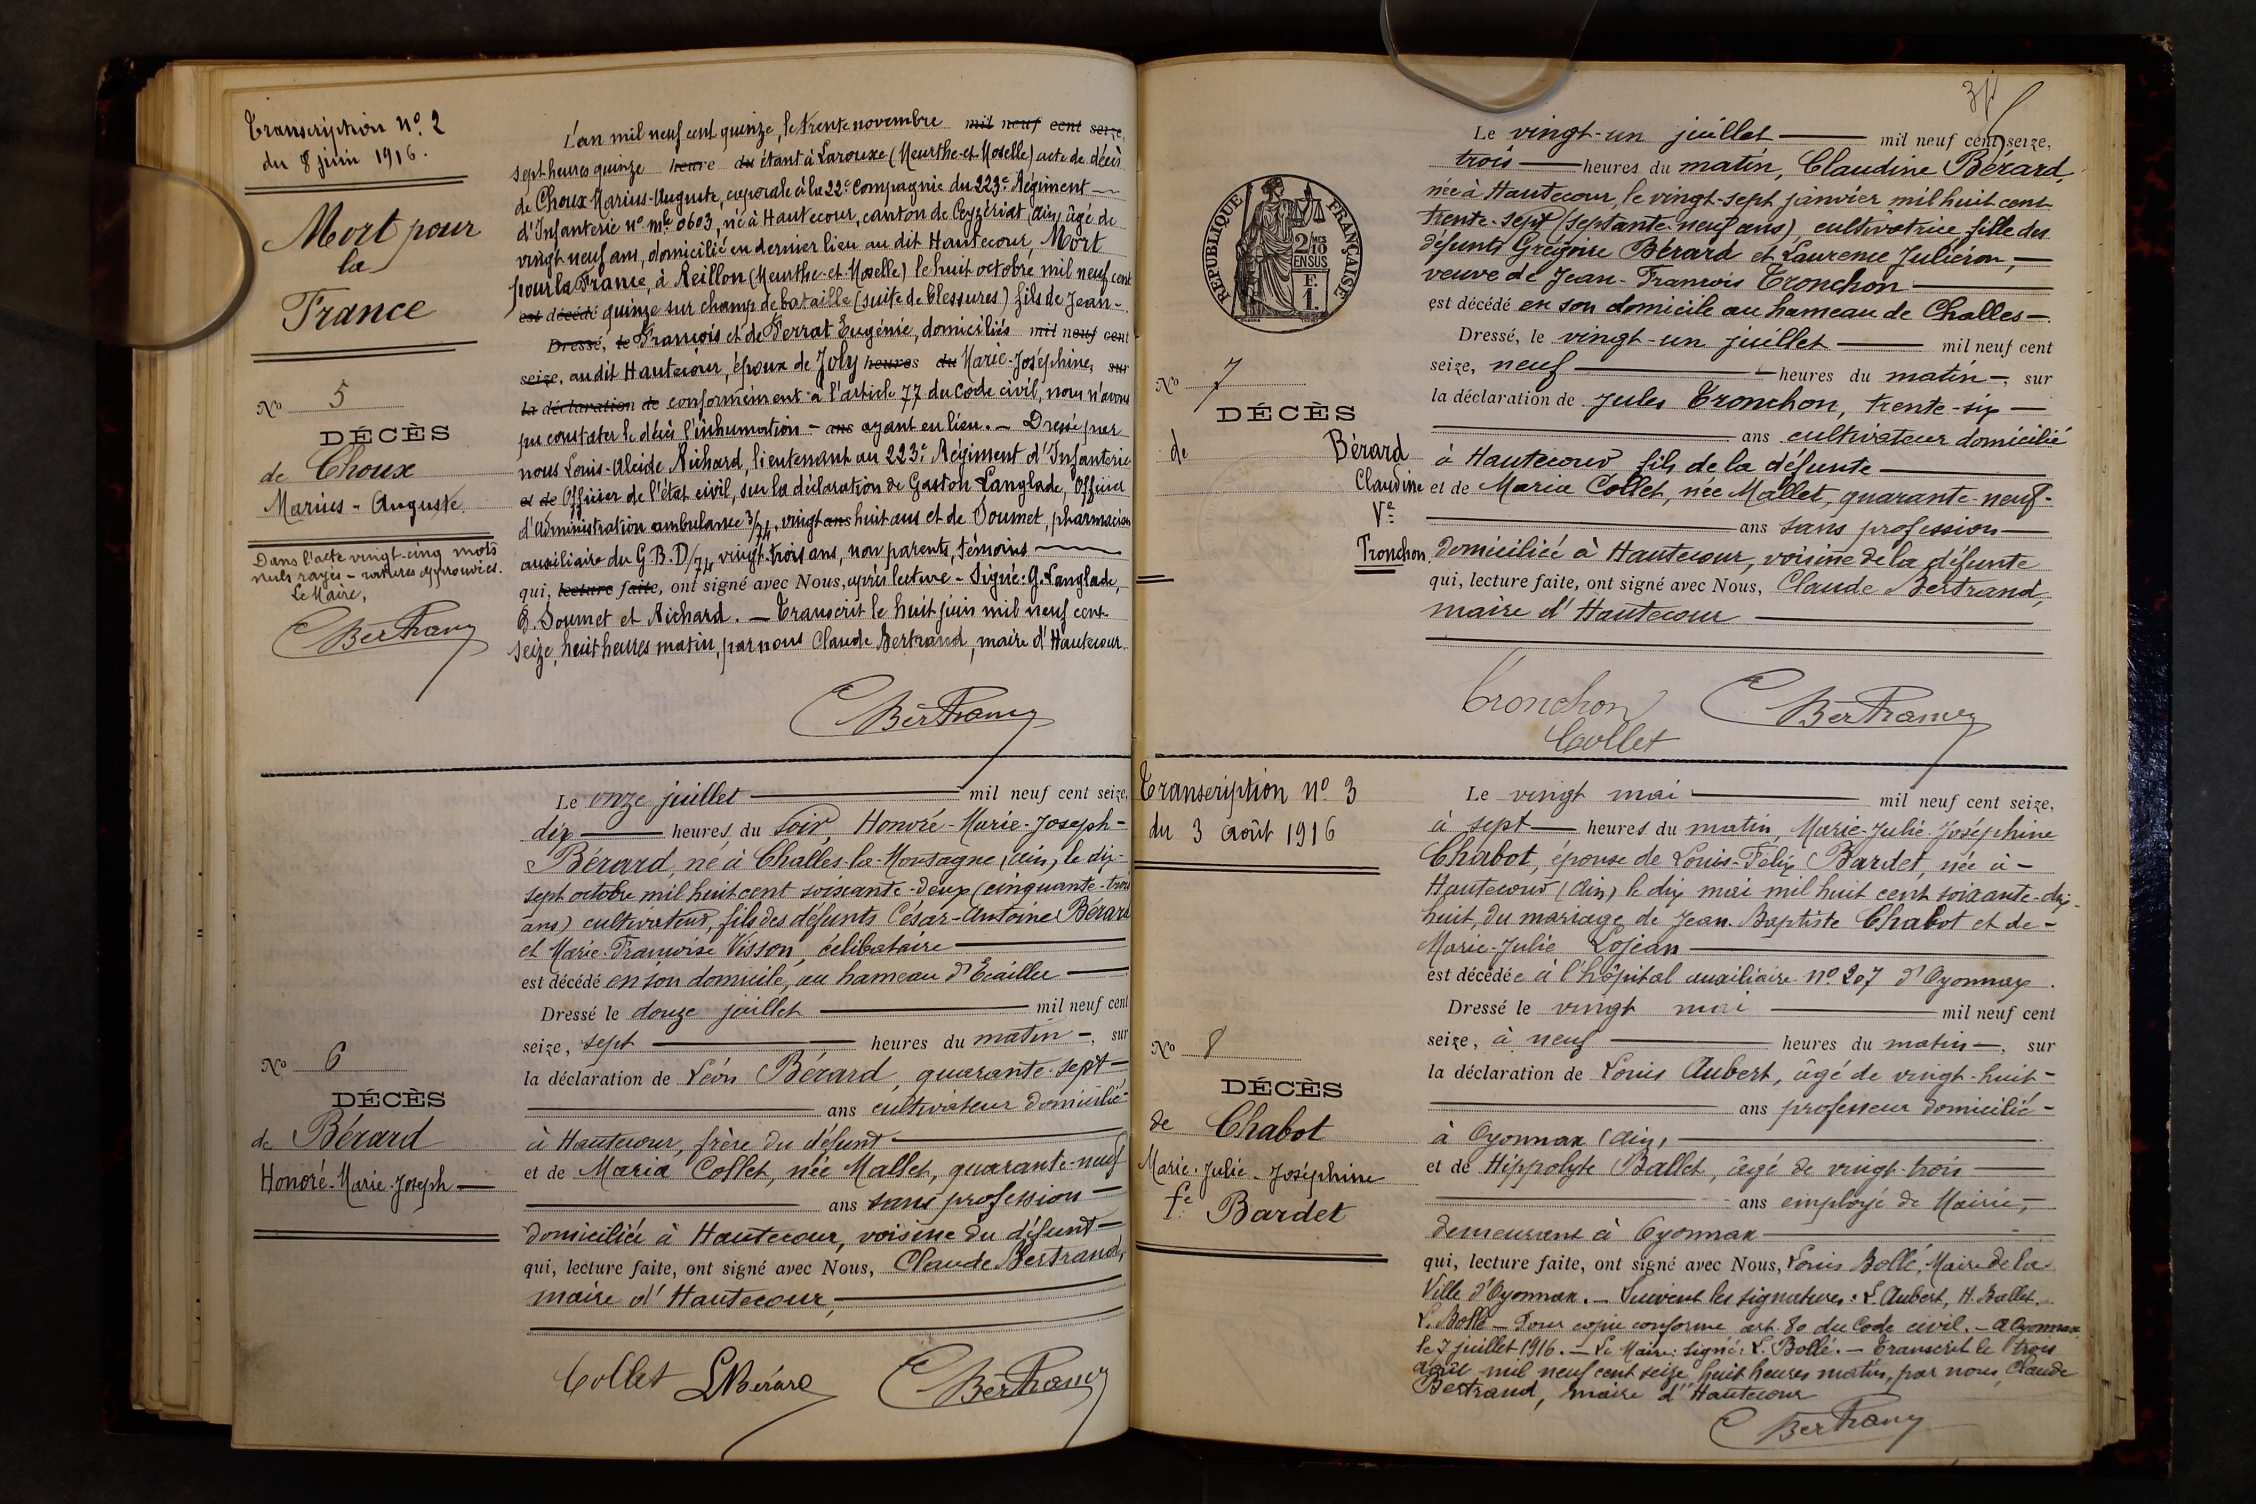 Transcription No. 2
du 8 juin 1916.
Mort pour
la
France
No 5
DÉCÈS
de Choux
Marius-Auguste
Dans l'acte vingt-cinq mots
nuls rayés - ratures approuvées.
Le Maire,
C Bertrand
L'an mil neuf cent quinze, le trente novembre mil neuf cent seize,
sept heures quinze heure du étant à Laronxe (Meurthe-et-Moselle) acte de décès
de Choux Marius-Auguste, caporal à la 22e Compagnie du 223e Régiment
d'Infanterie no mle 0603, né à Hautecour, canton de Ceyzériat (Ain) âgé de
vingt-neuf ans, domicilié en dernier lieu au dit Hautecour, Mort
pour la France, à Reillon (Meurthe-et-Moselle) le huit octobre mil neuf cent
est décédé quinze sur champ de bataille (suite de blessures) fils de Jean-
Dressé, le François et de Perrat Eugénie, domiciliés mil neuf cent
seize, au dit Hautecour, époux de Joly heures du Marie-Joséphine, sur
la déclaration de conformément à l'article 77 du Code civil, nous n'avons
pu constater le décès l'inhumation - ans ayant eu lieu. - Dressé par
nous Louis-Alcide Richard, lieutenant au 223e Régiment d'Infanterie
et de Officier de l'état civil, sur la déclaration de Gaston Langlade, Officier
d'Administration ambulance 3/74, vingt ans huit ans et de Doumet, pharmacien
auxiliaire du G.B.D/74 vingt-trois ans, non parents, témoins
qui, lecture faite, ont signé avec Nous, après lecture - Signé: G. Langlade,
E. Doumet et Richard. - Transcrit le huit juin mil neuf cent
seize, huit heures matin, par nous Claude Bertrand, maire d'Hautecour.
C Bertrand
No 6
DÉCÈS
de Bérard
Honoré-Marie-Joseph
Le onze juillet mil neuf cent seize,
dix heures du soir, Honoré-Marie-Joseph-
Bérard, né à Challes-la-Montagne (Ain), le dix-
sept octobre mil huit cent soixante-deux (cinquante-trois
ans) cultivateur, fils des défunts César-Antoine Bérard
et Marie-Françoise Visson, célibataire
est décédé en son domicile, au hameau d'Écailler
Dressé le douze juillet mil neuf cent
seize, sept heures du matin -, sur
la déclaration de Léon Bérard, quarante-sept-
ans cultivateur domicilié-
à Hautecour, frère du défunt
et de Maria Collet, née Mallet, quarante-neuf
ans sans profession
domiciliée à Hautecour, voisine du défunt-
qui, lecture faite, ont signé avec Nous, Claude Bertrand,
maire d'Hautecour,
Collet LBérard C Bertrand
RÉPUBLIQUE FRANÇAISE
2/10 MES
EN SUS
F.
1
No 7
DÉCÈS
de Bérard
Claudine
Ve
Tronchon
Le vingt-un juillet mil neuf cent seize,
trois heures du matin, Claudine Bérard,
née à Hautecour, le vingt-sept janvier mil huit cent
trente-sept (septante-neuf ans), cultivatrice, fille des
défunts Grégoire Bérard et Laurence Juliéron,
veuve de Jean-François Tronchon
est décédé en son domicile au hameau de Challes-
Dressé, le vingt-un juillet mil neuf cent
seize, neuf heures du matin -, sur
la déclaration de Jules Tronchon, trente-six
ans cultivateur domicilié
à Hautecour fils de la défunte
et de Maria Collet, née Mallet, quarante-neuf-
ans sans profession
domiciliée à Hautecour, voisine de la défunte
qui, lecture faite, ont signé avec Nous, Claude Bertrand,
maire d'Hautecour
Tronchon C Bertrand
Collet
Transcription No. 3
du 3 août 1916
No 8
DÉCÈS
de Chabot
Marie-Julie-Joséphine
fe Bardet
Le vingt mai mil neuf cent seize,
à sept heures du matin, Marie-Julie-Joséphine
Chabot, épouse de Louis-Félix Bardet, née à -
Hautecour (Ain) le dix mai mil huit cent soixante-dix-
huit, du mariage de Jean-Baptiste Chabot et de -
Marie-Julie Lojean
est décédée à l'hôpital auxiliaire No 207 d'Oyonnax.
Dressé le vingt mai mil neuf cent
seize, à neuf heures du matin -, sur
la déclaration de Louis Aubert, âgé de vingt-huit-
ans professeur domicilié-
à Oyonnax (Ain),
et de Hippolyte Ballet, âgé de vingt-trois
ans employé de Mairie,
demeurant à Oyonnax
qui, lecture faite, ont signé avec Nous, Louis Bollé, Maire de la
Ville d'Oyonnax. - Suivent les signatures: L. Aubert, H. Ballet.
L. Bollé - Pour copie conforme art. 80 du Code civil. - A Oyonnax
le 7 juillet 1916. - Le Maire: signé: L. Bollé. - Transcrit le trois
août mil neuf cent seize, huit heures matin, par nous Claude
Bertrand, maire d'Hautecour
C Bertrand